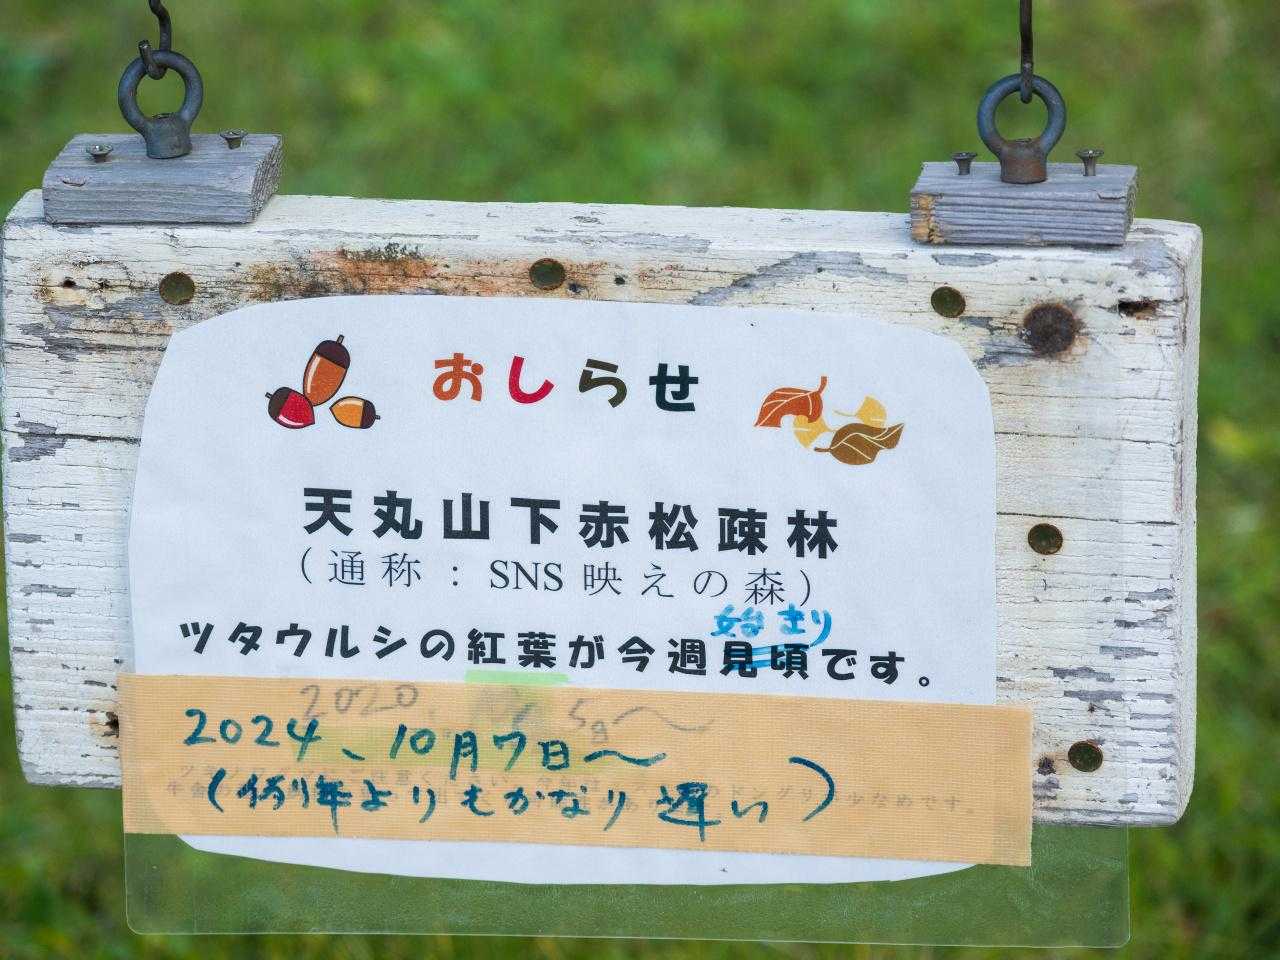 おしらせ
天丸山下赤松疎林
(通称:SNS映えの森)
始まり
ツタウルシの紅葉が今週見頃です。
2020
2024、10月7日〜
(例年よりもかなり遅い)